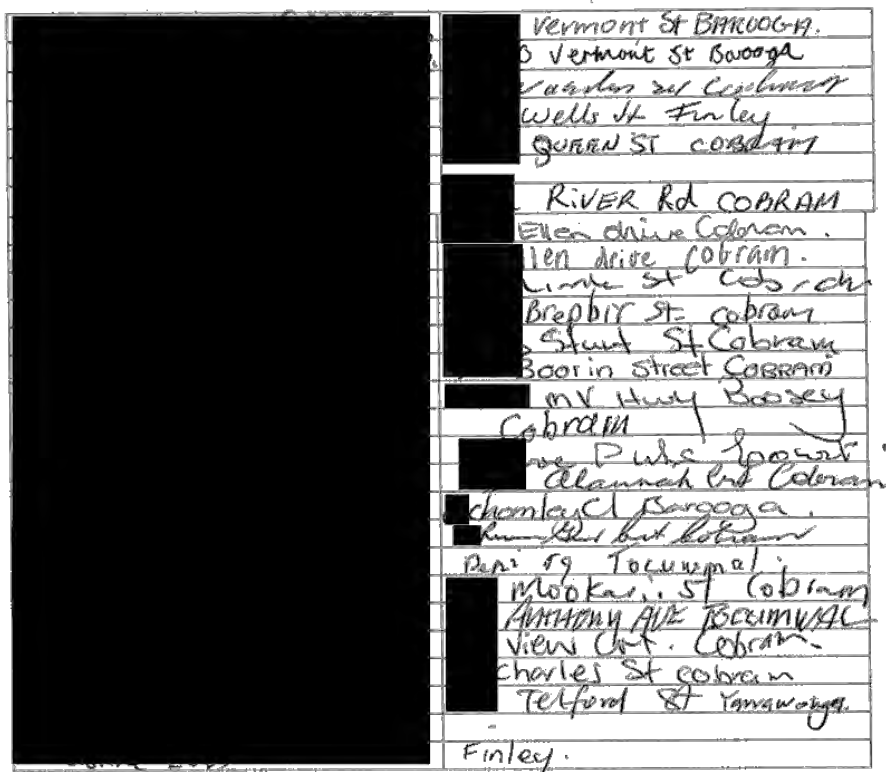 Vermont St BAROOGA.
Vermont St Barooga
Wells St Finley
QUEEN ST COBRAM
RIVER Rd COBRAM
Ellen drive Cobram.
llen drive Cobram.
St Cobram
St. cobram
Sturt St Cobram
Boorin Street COBRAM
MV Hwy Boosey
Cobram
Alannah Crt Cobram
Cl Barooga.
Cobram
Deni rd Tocumwal.
St Cobram
ANTHONY AVE TOCUMWAL
View Crt. Cobram
Charles St cobram
Telford St Yarrawonga.
Finley.